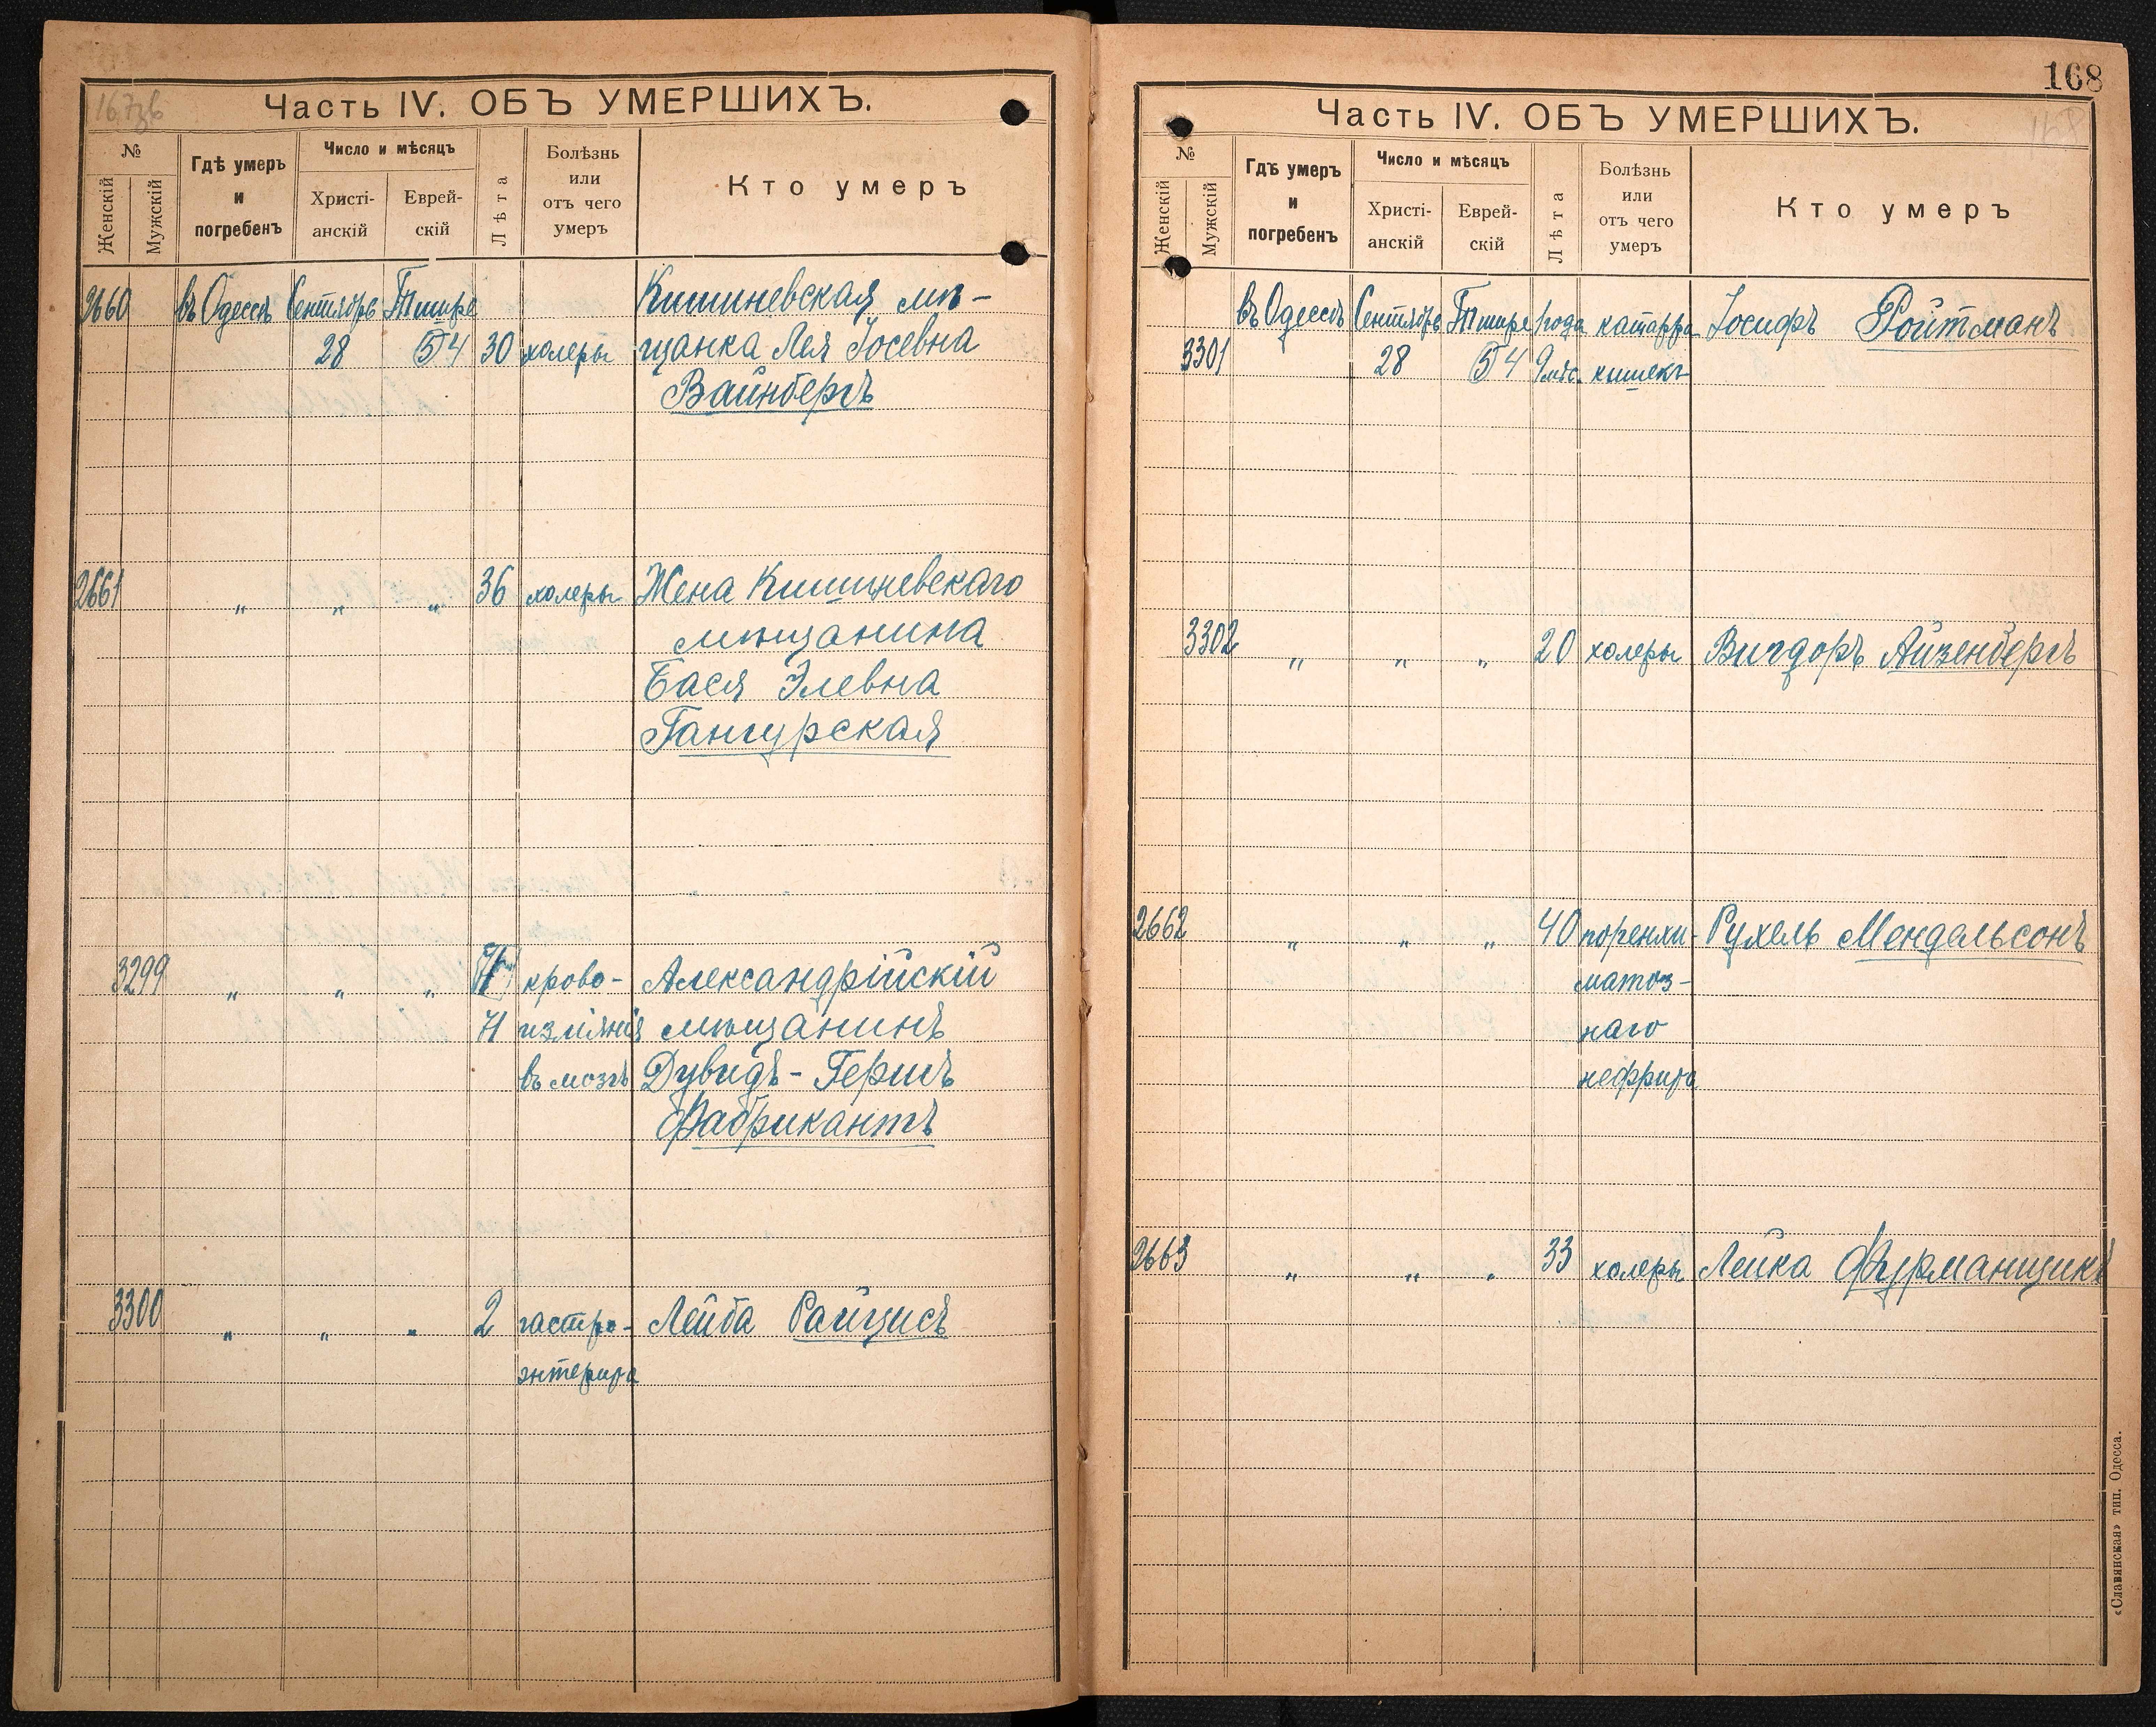 167 зв
Часть IV. ОБЪ УМЕРШИХЪ.
№ Женскій Мужскій
Гдѣ умеръ и погребенъ
Число и мѣсяцъ
Христі-анскій
Еврей-скій
Лѣта
Болѣзнь или отъ чего умеръ
Кто умеръ
2660 въ Одессѣ Сентябрь Тишре Кишиневская мѣ-
28 (5) 4 30 холеры щанка Лея Іосевна
Вайнбергъ
2661 „ „ „ 36 холеры Жена Кишиневскаго
мѣщанина
Бася Элевна
Гангурская
3299 „ „ „ крово- Александрійскій
71 изліянія мѣщанинъ
въ мозгъ Дувидъ-Гершъ
Фабрикантъ
3300 „ „ „ 2 гастро- Лейба Райцисъ
энтерита
168
158
Часть IV. ОБЪ УМЕРШИХЪ.
№ Женскій Мужскій
Гдѣ умеръ и погребенъ
Число и мѣсяцъ
Христі-анскій
Еврей-скій
Лѣта
Болѣзнь или отъ чего умеръ
Кто умеръ
въ Одессѣ Сентябрь Тишре 1 года катарра Іосифъ Ройтманъ
3301 28 (5) 4 9 мѣс. кишекъ
3302 „ „ „ 20 холеры Вигдоръ Айзенбергъ
2662 „ „ „ 40 поренхи- Рухель Мендельсонъ
матоз-
наго
нефрита
2663 „ „ „ 33 холеры Лейка Фурманщикъ
«Славянская» тип. Одесса.